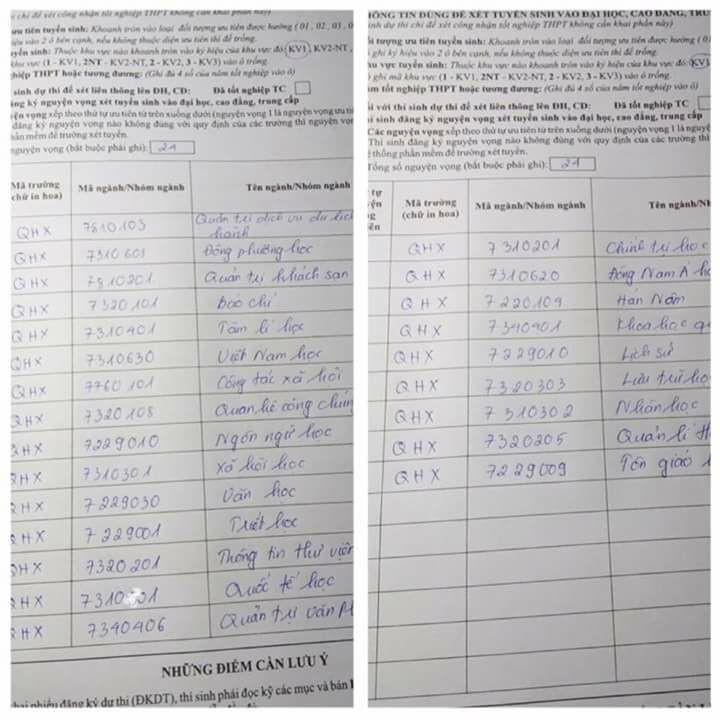 chỉ để xét công nhận tốt nghiệp THPT không cần khai phần này)
ưu tiên tuyển sinh: Khoanh tròn vào loại đối tượng ưu tiên được hưởng (01, 02, 03, 0
vào 2 ô bên cạnh, nếu không thuộc diện ưu tiên thì để trống.
tuyển sinh: Thuộc khu vực nào khoanh tròn vào ký hiệu của khu vực đó: KV1, KV2-NT,
khu vực (1 - KV1, 2NT - KV2-NT, 2 - KV2, 3 - KV3) vào ô trống.
nghiệp THPT hoặc tương đương: (Ghi đủ 4 số của năm tốt nghiệp vào ô)
sinh dự thi để xét liên thông lên ĐH, CĐ: Đã tốt nghiệp TC
đăng ký nguyện vọng xét tuyển sinh vào đại học, cao đẳng, trung cấp
vọng xếp theo thứ tự ưu tiên từ trên xuống dưới (nguyện vọng 1 là nguyện vọng ưu ti
đăng ký nguyện vọng nào không đúng với quy định của các trường thì nguyện vọ
mềm để trường xét tuyển.
nguyện vọng (bắt buộc phải ghi): 24
Mã trường (chữ in hoa) Mã ngành/Nhóm ngành Tên ngành/Nhóm ngành
QHX 7810103 Quản trị dịch vụ du lịch hành
QHX 7310608 Đông phương học
QHX 7810201 Quản trị khách sạn
QHX 7320101 Báo chí
QHX 7310401 Tâm lí học
QHX 7310630 Việt Nam học
QHX 7760101 Công tác xã hội
QHX 7320108 Quan hệ công chún
QHX 7229010 Ngôn ngữ học
HX 7310301 Xã hội học
HX 7229030 Văn học
HX 7229001 Triết học
HX 7320201 Thông tin thư viện
HX Quốc tế học
HX 7340406 Quản trị văn
NHỮNG ĐIỂM CẦN LƯU Ý
phiếu đăng ký dự thi (ĐKDT), thí sinh phải đọc kỹ các mục và bản
THÔNG TIN DÙNG ĐỂ XÉT TUYỂN SINH VÀO ĐẠI HỌC, CAO ĐẲNG, TRU
sinh dự thi chỉ để xét công nhận tốt nghiệp THPT không cần khai phần này)
tượng ưu tiên tuyển sinh: Khoanh tròn vào loại đối tượng ưu tiên được hưởng (0
ghi ký hiệu vào 2 ô bên cạnh, nếu không thuộc diện ưu tiên thì để trống.
vực tuyển sinh: Thuộc khu vực nào khoanh tròn vào ký hiệu của khu vực đó: KV1
ghi mã khu vực (1 - KV1, 2NT - KV2-NT, 2 - KV2, 3 - KV3) vào ô trống.
tốt nghiệp THPT hoặc tương đương: (Ghi đủ 4 số của năm tốt nghiệp vào ô)
với thí sinh dự thi để xét liên thông lên ĐH, CĐ: Đã tốt nghiệp TC
sinh đăng ký nguyện vọng xét tuyển sinh vào đại học, cao đẳng, trung cấp
Các nguyện vọng xếp theo thứ tự ưu tiên từ trên xuống dưới (nguyện vọng 1 là nguyệ
Thí sinh đăng ký nguyện vọng nào không đúng với quy định của các trường thì
thống phần mềm để trường xét tuyển.
Tổng số nguyện vọng (bắt buộc phải ghi): 24
Mã trường (chữ in hoa) Mã ngành/Nhóm ngành Tên ngành/Nh
QHX 7310201 Chính trị học
QHX 7310620 Đông Nam Á họ
QHX 7220104 Hán Nôm
QHX 7340401 Khoa học q
QHX 7229010 Lịch sử
QHX 7320303 Lưu trữ họ
QHX 7310302 Nhân học
QHX 7320205 Quản lí th
QHX 7229009 Tôn giáo